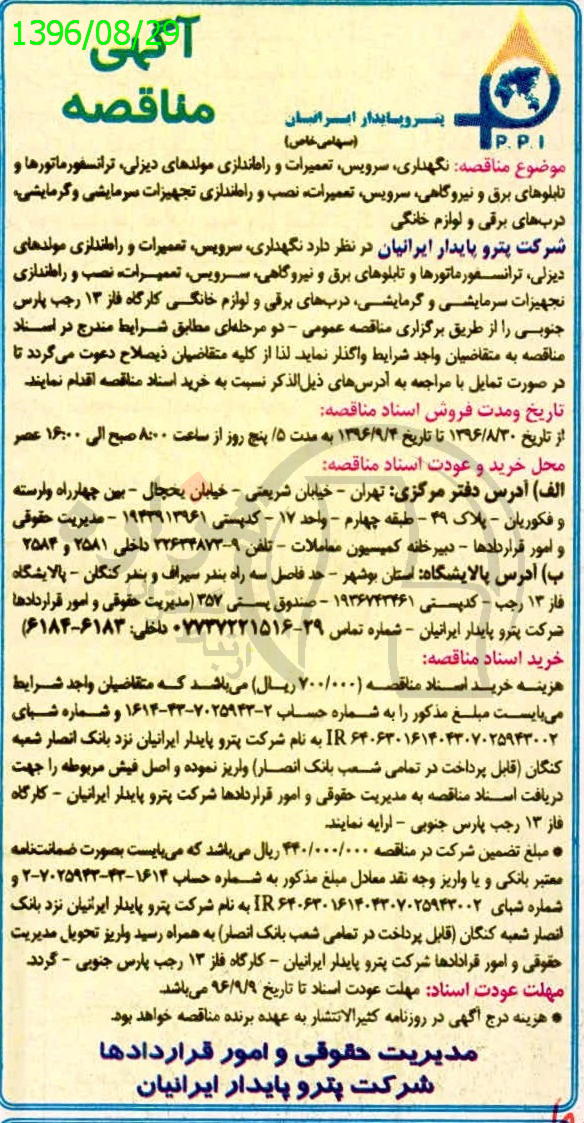 1396/08/29
آگهی
مناقصه
پتروپایدار ایرانیان
(سهامی خاص)
P.P.I
موضوع مناقصه: نگهداری، سرویس، تعمیرات و راه‌اندازی مولدهای دیزلی، ترانسفورماتورها و
تابلوهای برق و نیروگاهی، سرویس، تعمیرات، نصب و راه‌اندازی تجهیزات سرمایشی وگرمایشی،
درب‌های برقی و لوازم خانگی
شرکت پترو پایدار ایرانیان در نظر دارد نگهداری، سرویس، تعمیرات و راه‌اندازی مولدهای
دیزلی، ترانسفورماتورها و تابلوهای برق و نیروگاهی، سرویس، تعمیرات، نصب و راه‌اندازی
تجهیزات سرمایشی و گرمایشی، درب‌های برقی و لوازم خانگی کارگاه فاز ۱۳ رجب پارس
جنوبی را از طریق برگزاری مناقصه عمومی - دو مرحله‌ای مطابق شرایط مندرج در اسناد
مناقصه به متقاضیان واجد شرایط واگذار نماید. لذا از کلیه متقاضیان ذیصلاح دعوت می‌گردد تا
در صورت تمایل با مراجعه به آدرس‌های ذیل‌الذکر نسبت به خرید اسناد مناقصه اقدام نمایند.
تاریخ ومدت فروش اسناد مناقصه:
از تاریخ ۱۳۹۶/۸/۳۰ تا تاریخ ۱۳۹۶/۹/۴ به مدت ۵/ پنج روز از ساعت ۸:۰۰ صبح الی ۱۶:۰۰ عصر
محل خرید و عودت اسناد مناقصه:
الف) آدرس دفتر مرکزی: تهران - خیابان شریعتی - خیابان یخچال - بین چهارراه وارسته
و فکوریان - پلاک ۴۹ - طبقه چهارم - واحد ۱۷ - کدپستی ۱۹۴۳۹۱۳۹۶۱ - مدیریت حقوقی
و امور قراردادها - دبیرخانه کمیسیون معاملات - تلفن ۹-۲۲۶۳۴۸۷۳ داخلی ۲۵۸۱ و ۲۵۸۴
ب) آدرس پالایشگاه: استان بوشهر - حد فاصل سه راه بندر سیراف و بندر کنگان - پالایشگاه
فاز ۱۳ رجب - کدپستی ۱۹۳۶۷۴۳۴۶۱ - صندوق پستی ۳۵۷ (مدیریت حقوقی و امور قراردادها
شرکت پترو پایدار ایرانیان - شماره تماس ۲۹-۰۷۷۳۷۲۲۱۵۱۶ داخلی: ۶۱۸۳-۶۱۸۴)
خرید اسناد مناقصه:
هزینه خرید اسناد مناقصه (۷۰۰/۰۰۰ ریال) می‌باشد که متقاضیان واجد شرایط
می‌بایست مبلغ مذکور را به شماره حساب ۲-۷۰۲۵۹۴۳-۴۳-۱۶۱۴ و شماره شبای
IR ۶۴۰۶۳۰۱۶۱۴۰۴۳۰۷۰۲۵۹۴۳۰۰۲ به نام شرکت پترو پایدار ایرانیان نزد بانک انصار شعبه
کنگان (قابل پرداخت در تمامی شعب بانک انصار) واریز نموده و اصل فیش مربوطه را جهت
دریافت اسناد مناقصه به مدیریت حقوقی و امور قراردادها شرکت پترو پایدار ایرانیان - کارگاه
فاز ۱۳ رجب پارس جنوبی - ارایه نمایند.
● مبلغ تضمین شرکت در مناقصه ۴۴۰/۰۰۰/۰۰۰ ریال می‌باشد که می‌بایست بصورت ضمانت‌نامه
معتبر بانکی و یا واریز وجه نقد معادل مبلغ مذکور به شماره حساب ۱۶۱۴-۴۳-۷۰۲۵۹۴۳-۲ و
شماره شبای IR ۶۴۰۶۳۰۱۶۱۴۰۴۳۰۷۰۲۵۹۴۳۰۰۲ به نام شرکت پترو پایدار ایرانیان نزد بانک
انصار شعبه کنگان (قابل پرداخت در تمامی شعب بانک انصار) به همراه رسید واریز تحویل مدیریت
حقوقی و امور قرادادها شرکت پترو پایدار ایرانیان - کارگاه فاز ۱۳ رجب پارس جنوبی - گردد.
مهلت عودت اسناد: مهلت عودت اسناد تا تاریخ ۹۶/۹/۹ می‌باشد.
● هزینه درج آگهی در روزنامه کثیرالانتشار به عهده برنده مناقصه خواهد بود.
مدیریت حقوقی و امور قراردادها
شرکت پترو پایدار ایرانیان